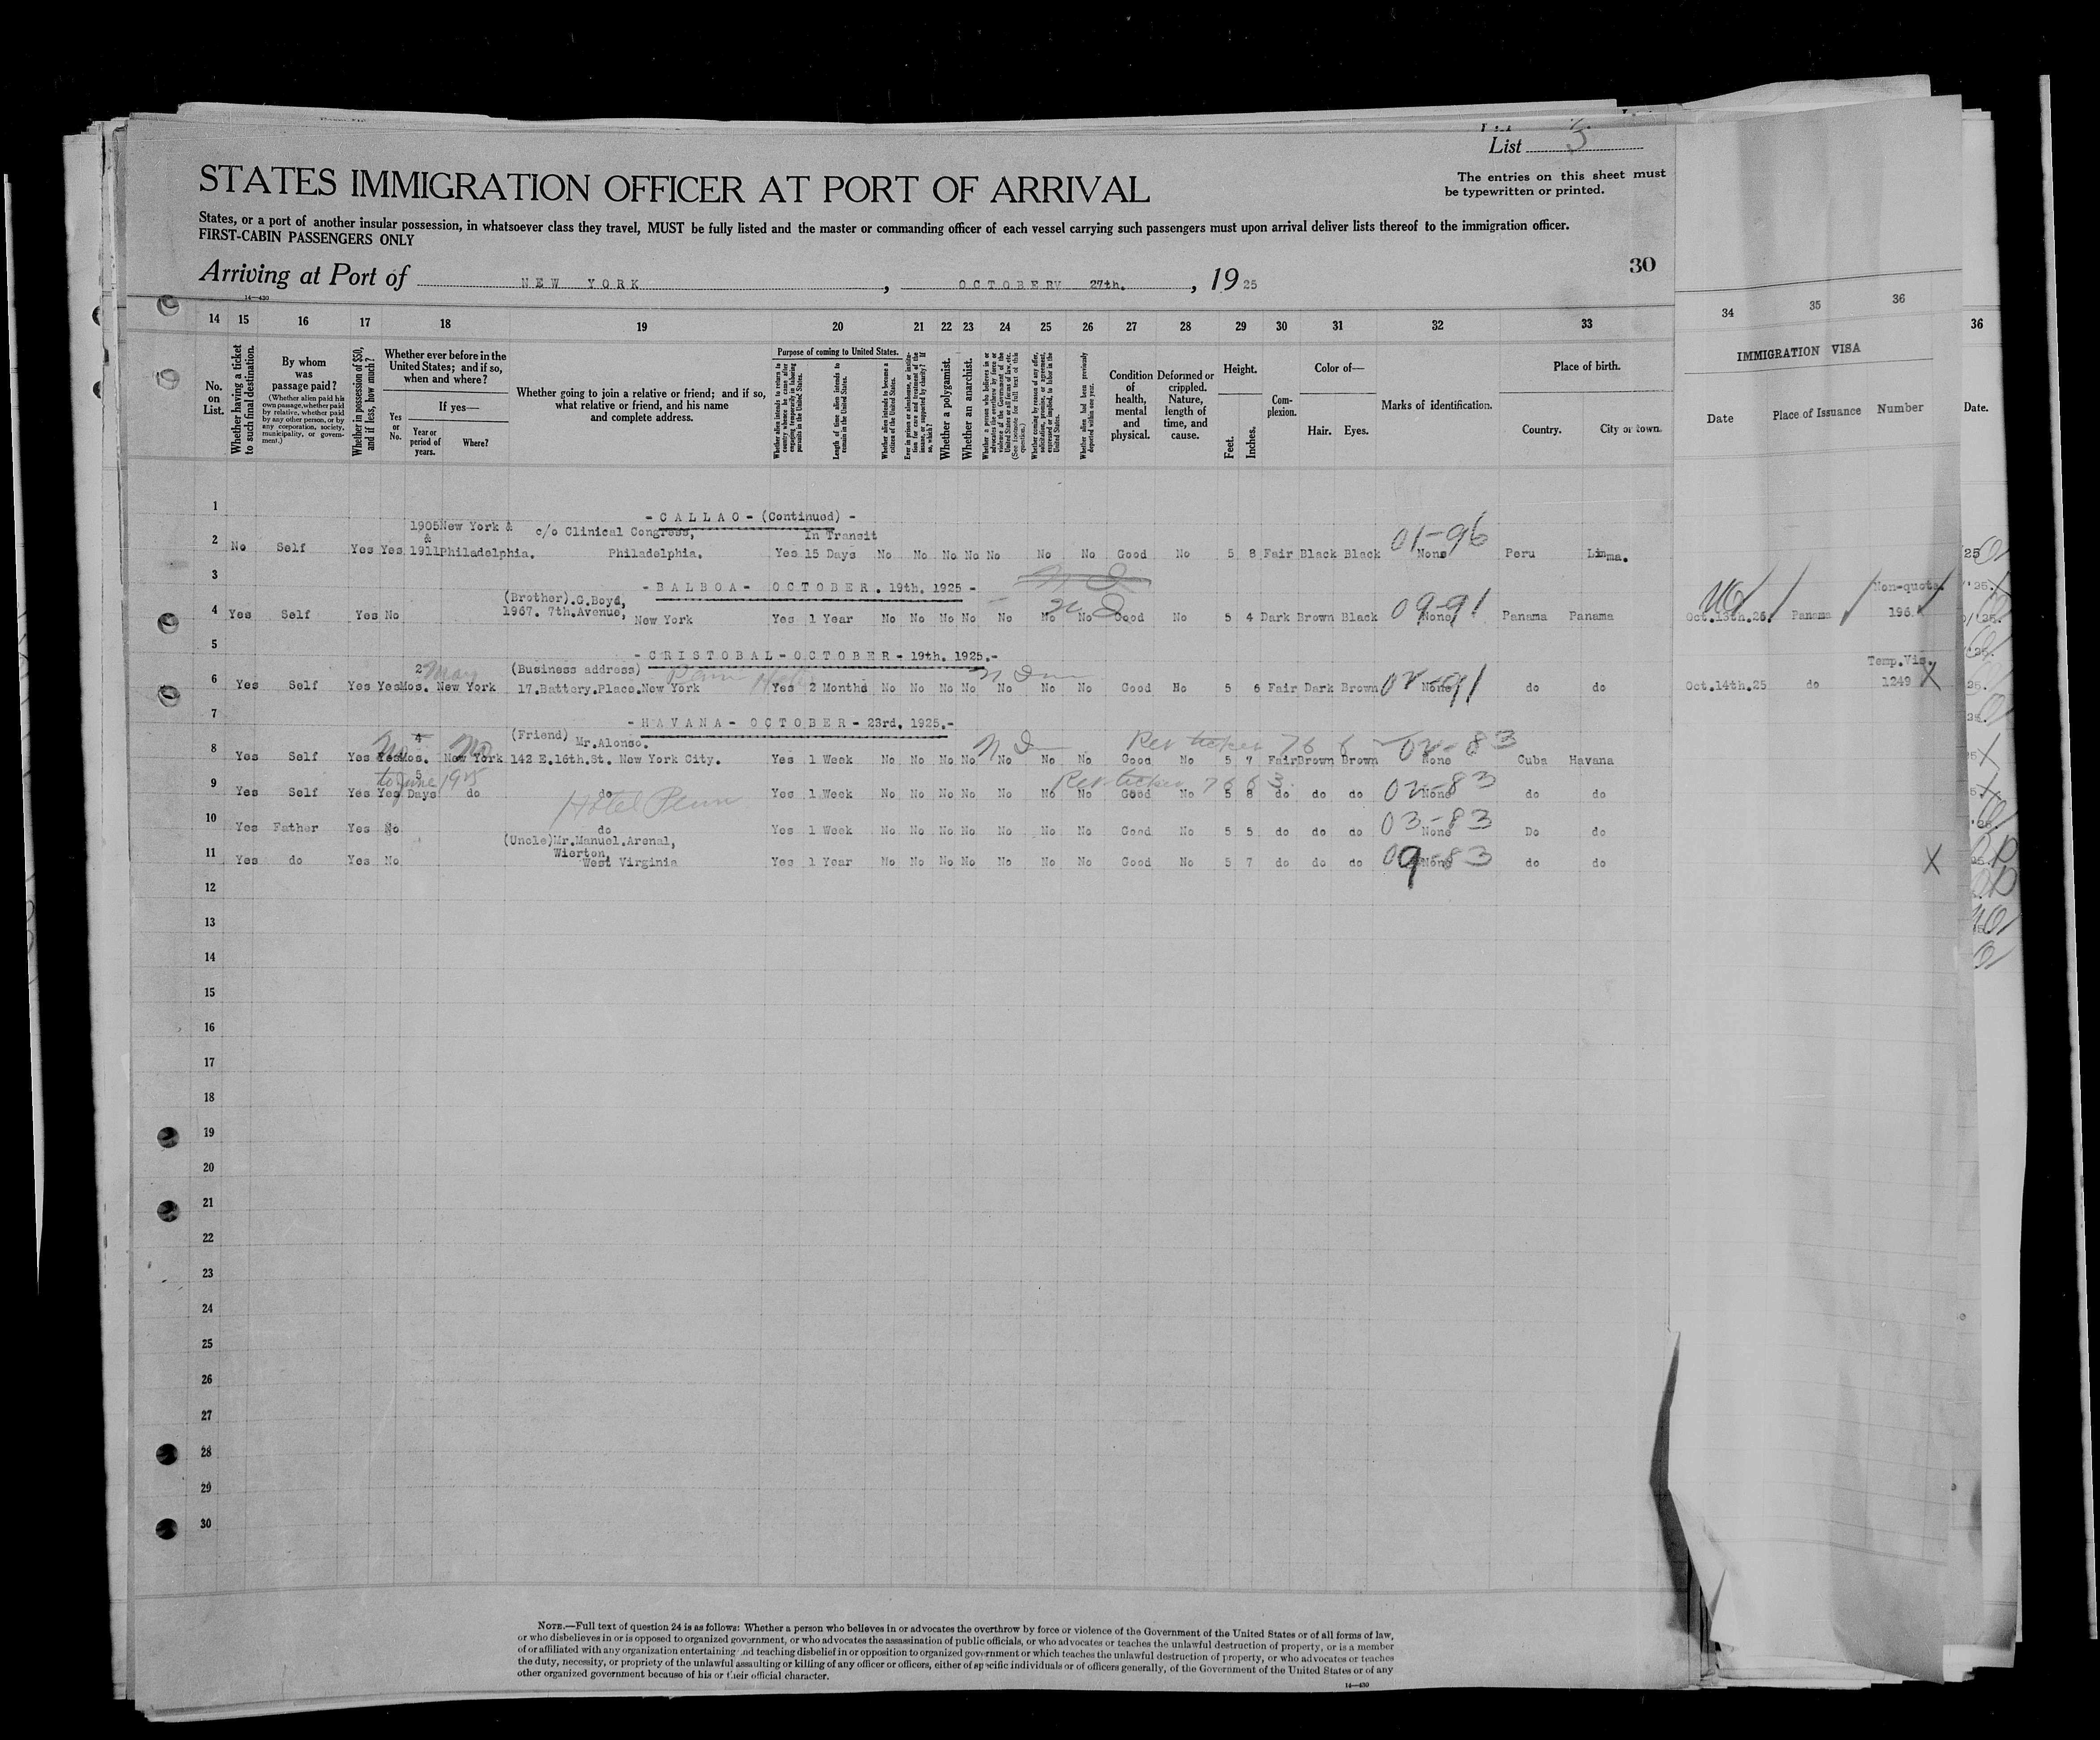 List 3
STATES IMMIGRATION OFFICER AT PORT OF ARRIVAL
The entries on this sheet must
be typewritten or printed.
States, or a port of another insular possession, in whatsoever class they travel, MUST be fully listed and the master or commanding officer of each vessel carrying such passengers must upon arrival deliver lists thereof to the immigration officer.
FIRST-CABIN PASSENGERS ONLY
Arriving at Port of NEW YORK, OCTOBER 27th., 1925
30
14—430
14 15 16 17 18 19 20 21 22 23 24 25 26 27 28 29 30 31 32 33 34 35 36
36
No. on List.
Whether having a ticket to such final destination.
By whom was passage paid?
(Whether alien paid his own passage, whether paid by relative, whether paid by any other person, or by any corporation, society, municipality, or government.)
Whether in possession of $50, and if less, how much?
Whether ever before in the United States; and if so, when and where?
Yes or No.
If yes—
Year or period of years.
Where?
Whether going to join a relative or friend; and if so, what relative or friend, and his name and complete address.
Purpose of coming to United States.
Whether alien intends to return to country whence he came after engaging temporarily in laboring pursuits in the United States.
Length of time alien intends to remain in the United States.
Whether alien intends to become a citizen of the United States.
Ever in prison or almshouse, or institution for care and treatment of the insane, or supported by charity? If so, which?
Whether a polygamist.
Whether an anarchist.
Whether a person who believes in or advocates the overthrow by force or violence of the Government of the United States or all forms of law, etc. (See footnote for full text of this question.)
Whether coming by reason of any offer, solicitation, promise, or agreement, expressed or implied, to labor in the United States.
Whether alien had been previously deported within one year.
Condition of health, mental and physical.
Deformed or crippled. Nature, length of time, and cause.
Height.
Feet.
Inches.
Complexion.
Color of—
Hair. Eyes.
Marks of identification.
Place of birth.
Country. City or town.
IMMIGRATION VISA
Date Place of Issuance Number
Date.
1
- CALLAO - (Continued) -
1905 New York & c/o Clinical Congress, In Transit
&
2 No Self Yes Yes 1911 Philadelphia. Philadelphia. Yes 15 Days No No No No No No No Good No 5 8 Fair Black Black None 01-96 Peru Lima.
3
- BALBOA - OCTOBER. 19th. 1925 -
(Brother).C.Boyd, Non-quota.
1967. 7th.Avenue,
4 Yes Self Yes No New York Yes 1 Year No No No No No No No Good No 5 4 Dark Brown Black None 09-91 Panama Panama Oct.13th.25. Panama 196.
5
- CRISTOBAL - OCTOBER - 19th. 1925.-
2 May (Business address) Penn Temp.Vis.
6 Yes Self Yes Yes Mos. New York 17.Battery.Place.New York Yes 2 Months No No No No No No No Good No 5 6 Fair Dark Brown None 02-91 do do Oct.14th.25 do 1249
7
- HAVANA - OCTOBER - 23rd. 1925.-
4 (Friend) Mr.Alonso.
8 Yes Self Yes Yes Mos. New York 142 E.16th.St. New York City. Yes 1 Week No No No No No No No Good No 5 7 Fair Brown Brown None 02-83 Cuba Havana
to June 1925
5
9 Yes Self Yes Yes Days do do Hotel Penn Yes 1 Week No No No No No No No Good No 5 8 do do do None 02-83 do do
10 Yes Father Yes No do Yes 1 Week No No No No No No No Good No 5 5 do do do None 03-83 Do do
(Uncle)Mr.Manuel.Arenal,
Wierton,
11 Yes do Yes No West Virginia Yes 1 Year No No No No No No No Good No 5 7 do do do None 09-83 do do
12
13
14
15
16
17
18
19
20
21
22
23
24
25
26
27
28
29
30
NOTE.—Full text of question 24 is as follows: Whether a person who believes in or advocates the overthrow by force or violence of the Government of the United States or of all forms of law,
or who disbelieves in or is opposed to organized government, or who advocates the assassination of public officials, or who advocates or teaches the unlawful destruction of property, or is a member
of or affiliated with any organization entertaining and teaching disbelief in or opposition to organized government or which teaches the unlawful destruction of property, or who advocates or teaches
the duty, necessity, or propriety of the unlawful assaulting or killing of any officer or officers, either of specific individuals or of officers generally, of the Government of the United States or of any
other organized government because of his or their official character.
14—430